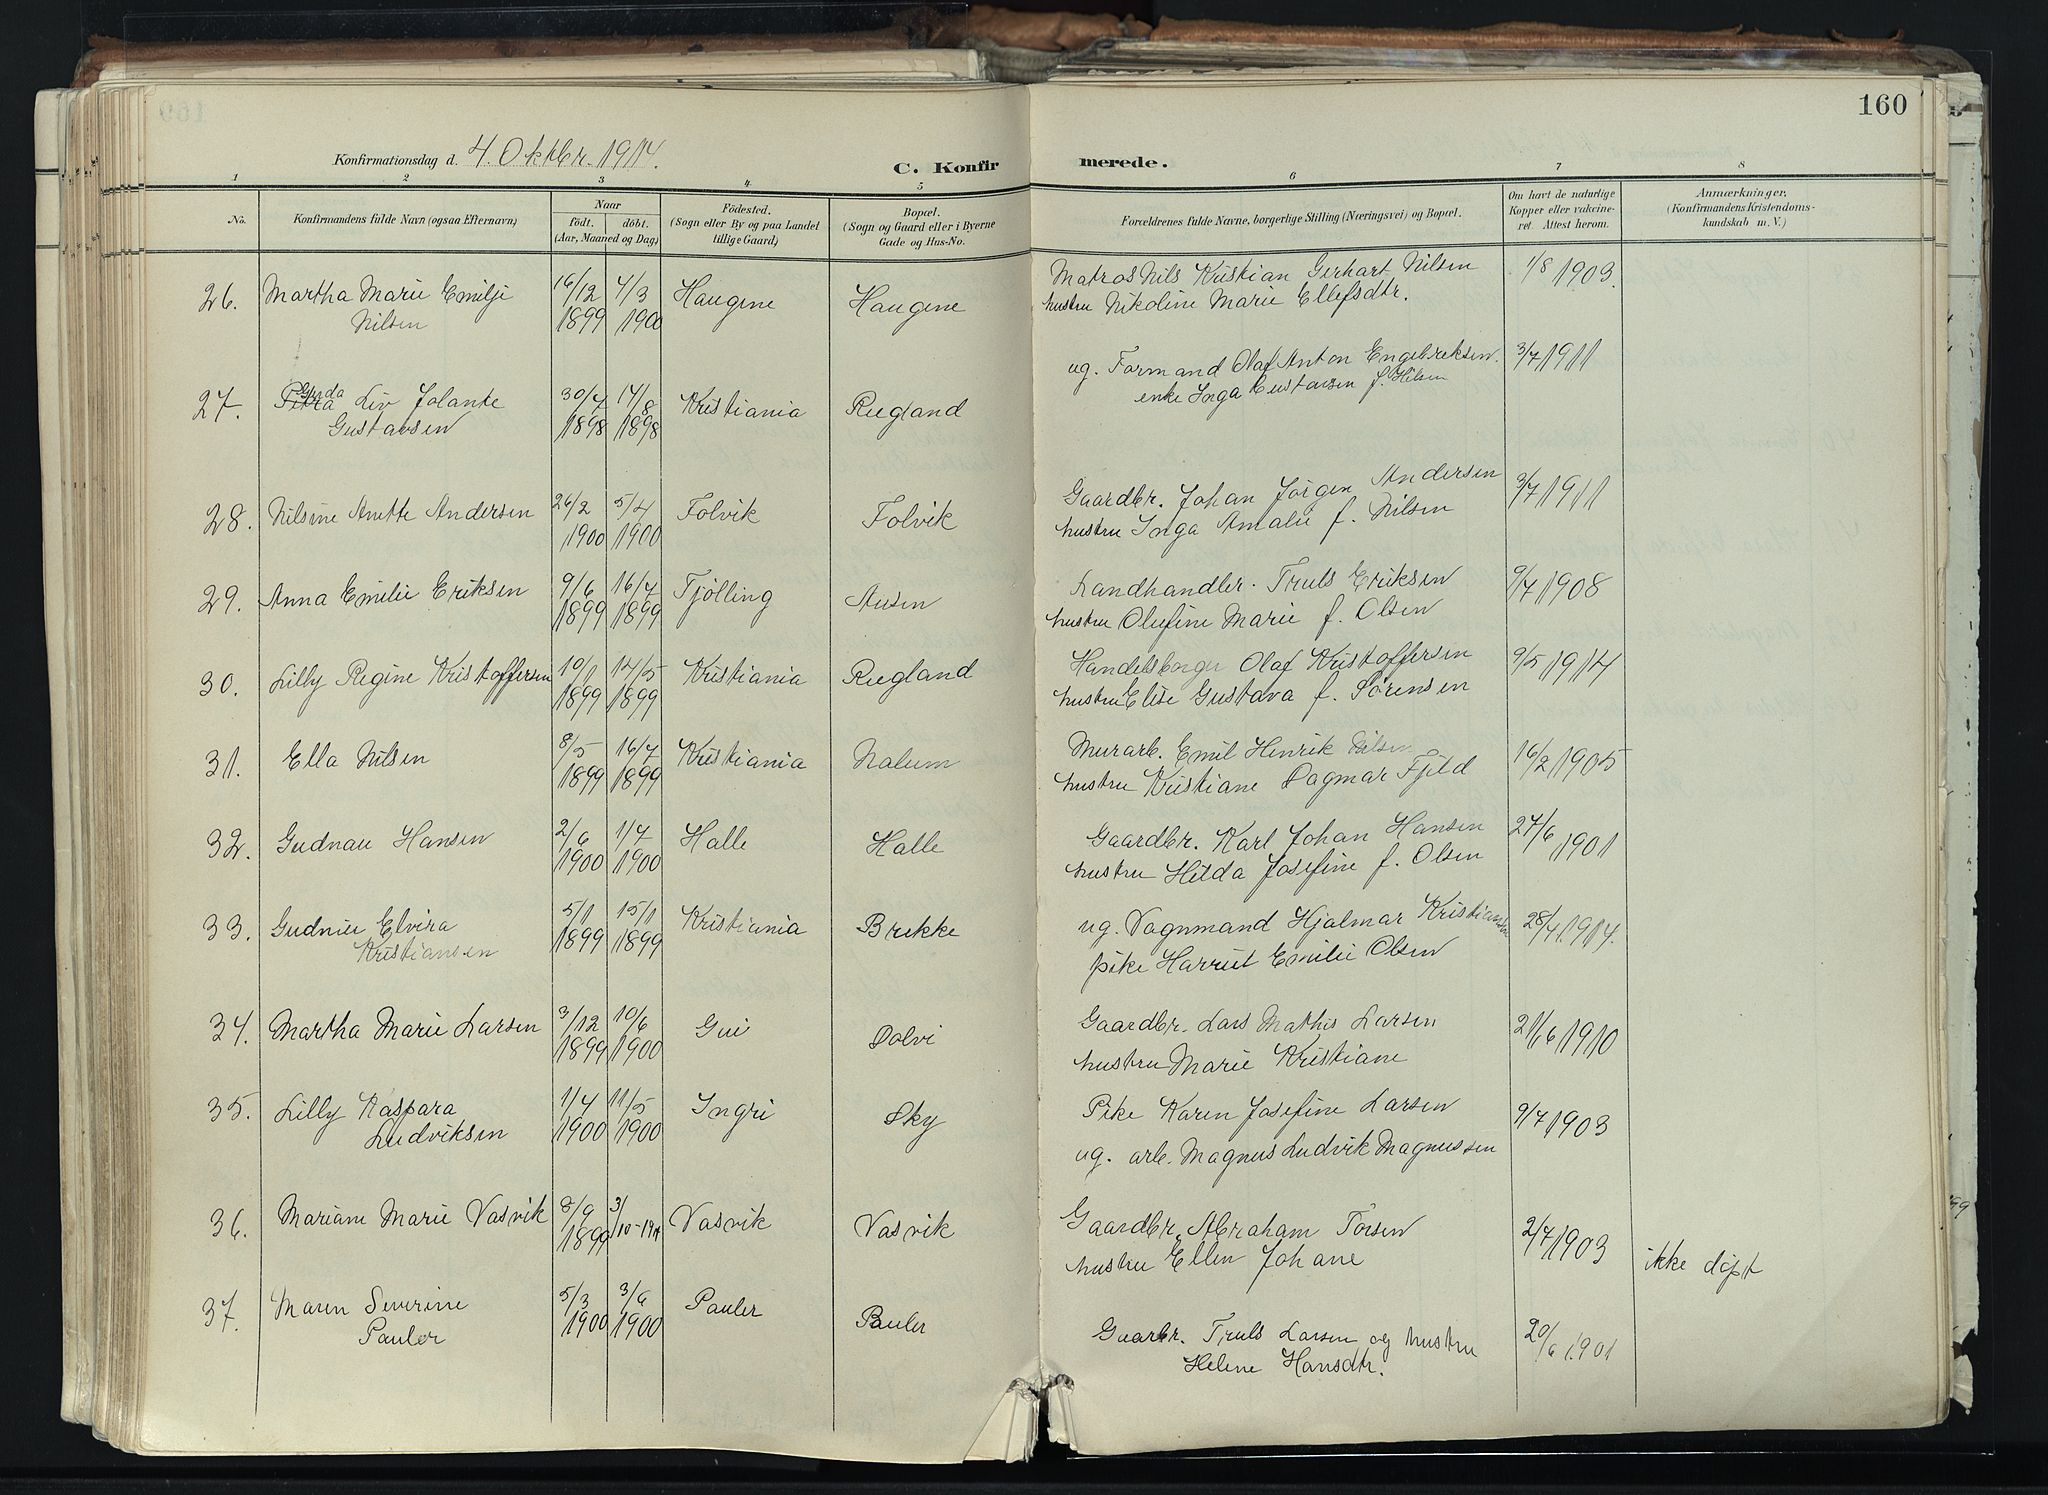 160
Konfirmationsdag d. 4. Oktbr. 1914.
C. Konfirmerede.
1 2 3 4 5 6 7 8
No.
Konfirmandens fulde Navn (ogsaa Efternavn).
Naar
født. døbt.
(Aar, Maaned og Dag)
Fødested.
(Sogn eller By og paa Landet
tillige Gaard)
Bopæl.
(Sogn og Gaard eller i Byerne
Gade og Hus-No.
Forældrenes fulde Navne, borgerlige Stilling (Næringsvei) og Bopæl.
Om havt de naturlige
Kopper eller vakcine-
ret. Attest herom.
Anmærkninger.
(Konfirmandens Kristendoms-
kundskab m. V.)
26. Martha Marie Emilje 16/12 4/3 Haugene Haugene Matros Nils Kristian Gerhart Nilsen 1/8 1903.
Nilsen 1899 1900 hustru Nikoline Marie Ellefsdtr.
27. Liv Jolante 30/4 14/8 Kristiania Regland ug. Formand Olaf Anton Engebreksen. 3/7 1911
Gustavsen 1898 1898 enke Inga Gustavsen f. Nilsen
28. Nilsine Anette Andersen 26/2 5/4 Folvik Folvik Gaardbr. Johan Jørgen Andersen 3/7 1911
1900 1900 hustru Inga Amalie f. Nilsen
29. Anna Emilie Eriksen 9/6 16/7 Tjølling Ausen Landhandler. Truls Eriksen 9/7 1908
1899 1899 hustru Olufine Marie f. Olsen
30. Lilly Regine Kristoffersen 10/1 14/5 Kristiania Regland Handelsborger Olaf Kristoffersen 9/5 1914
1899 1899 hustru Elise Gustava f. Sørensen
31. Ella Nilsen 8/5 16/7 Kristiania Nalum Murarb. Emil Henrik Nilsen 16/2 1905
1899 1899 hustru Kristiane Dagmar Fjeld
32. Gudnau Hansen 2/6 1/7 Halle Halle Gaardbr. Karl Johan Hansen 27/6 1901
1900 1900 hustru Hilda Josefine f. Olsen
33. Gudnie Elvira 5/1 15/1 Kristiania Brekke ug. Vognmand Hjalmar Kristiansen 28/4 1914.
Kristiansen 1899 1899 pike Harriet Emilie Olsen
34. Martha Marie Larsen 3/12 10/6 Gui Dolvi Gaardbr. Lars Mathis Larsen 21/6 1910
1899 1900 hustru Marie Kristiane
35. Lilly Kaspara 1/4 11/5 Ingri Sky Pike Karen Josefine Larsen 9/7 1903
Ludviksen 1900 1900 ug. arb. Magnus Ludvik Magnussen
36. Mariane Marie Vasvik 8/9 3/10-1914 Vasvik Vasvik Gaardbr. Abraham Torsen 2/7 1903 ikke døpt
1899 hustru Ellen Johane
37. Maren Severine 5/3 3/6 Pauler Pauler Gaarbr. Truls Larsen og hustru 20/6 1901
Pauler 1900 1900 Helene Hansdtr.